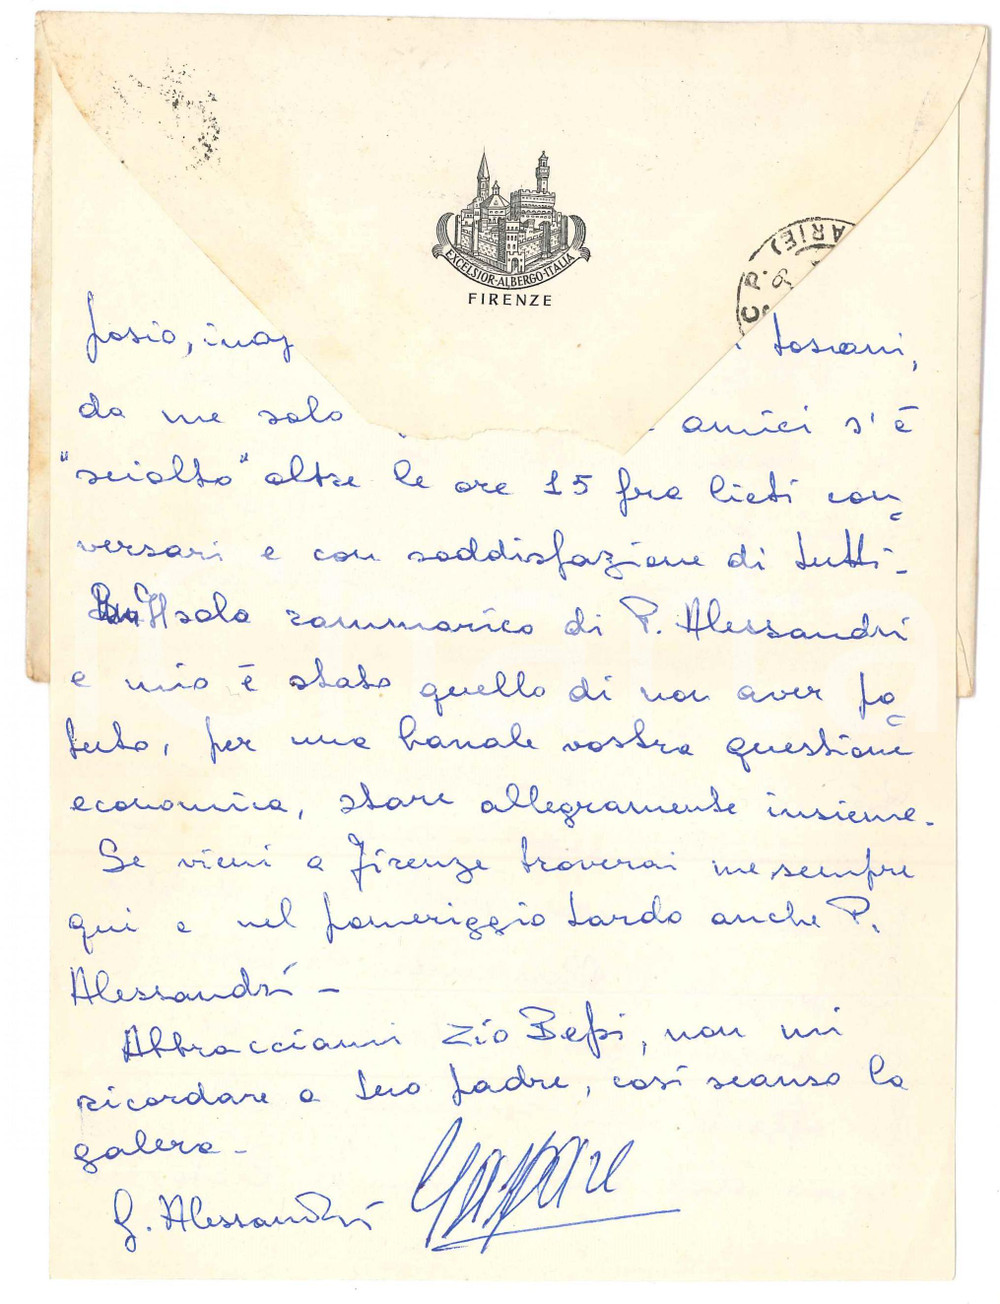 EXCELSIOR-ALBERGO-ITALIA
FIRENZE
C.P. ARIE)
posio, inaz toscani,
da me solo amici s'è
"sciolto" oltre le ore 15 fra lieti con
versari e con soddisfazione di tutti-
Il solo rammarico di P. Alessandri
e mio è stato quello di non aver po
tuto, per una banale vostra questione
economica, stare allegramente insieme.
Se vieni a Firenze troverai me sempre
qui e nel pomeriggio tardo anche P.
Alessandri -
Abbracciami zio Beppi, non mi
ricordare a tuo padre, così scanso la
galera -
G. Alessandri Gaspare